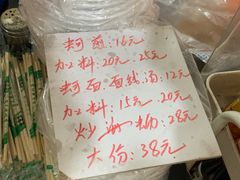 蚵煎:16元
加料:20元.25元
蚵面.面线汤:12元
加料:15元.20元
炒 粉:28元
大份:38元